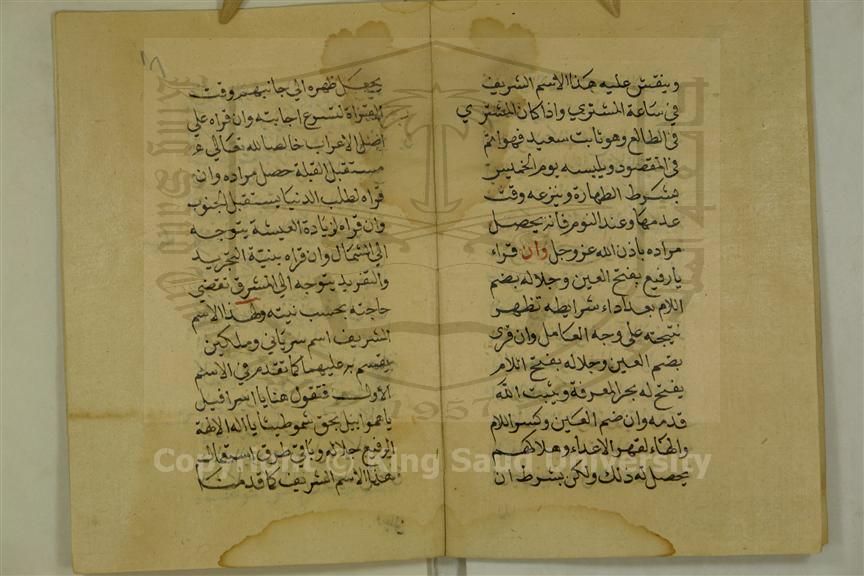 وينقش عليه هكذا الاسم الشريف
في ساعة المشتري واذا كان المشتري
في الطالع وهو ثابت سعيد فهو اتم
في المقصود ويلبسه يوم الخميس
بشرط الطهارة وينزعه وقت
عدمها وعند النوم فانه يحصل
مراده باذن الله عز وجل وان قراء
يا رفيع بفتح العين وجلاله بضم
اللام بعداداء شرايطه تظهر
نتيجته على وجه العامل وان قرى
بضم العين وجلاله بفتح اللام
يفتح له بحر المعرفة ويثبت الله
قدمه وان ضم العين وكسر اللام
والهاء لقهر الاعداء وهلاكهم
يحصل له ذلك ولكن بشرط ان
١٨
يجعل ظهره الي جانبهم وقت
القراة لتسرع اجابته وان قراه علي
اصل الاعراب خالصا لله تعالي
مستقبل القبلة حصل مراده وان
قراه لطلب الدنيا يستقبل الجنوب
وان قراه لزيادة العيشة يتوجه
الي الشمال وان قراه بنية التجريد
والتفريد يتوجه الي المشرق تقضى
حاجته بحسب نيته ولهذا الاسم
الشريف اسم سرياني وملكين
يقسم به عليهما كما تقدم في الاسم
الأول فتقول هنا يا اسرافيل
يا عموابيل بحق شموطيثا يا اله الالهة
الرفيع جلاله وباقي طرق استعمال
هذا الاسم الشريف كما قدمنا
Copyright © King Saud University
1957